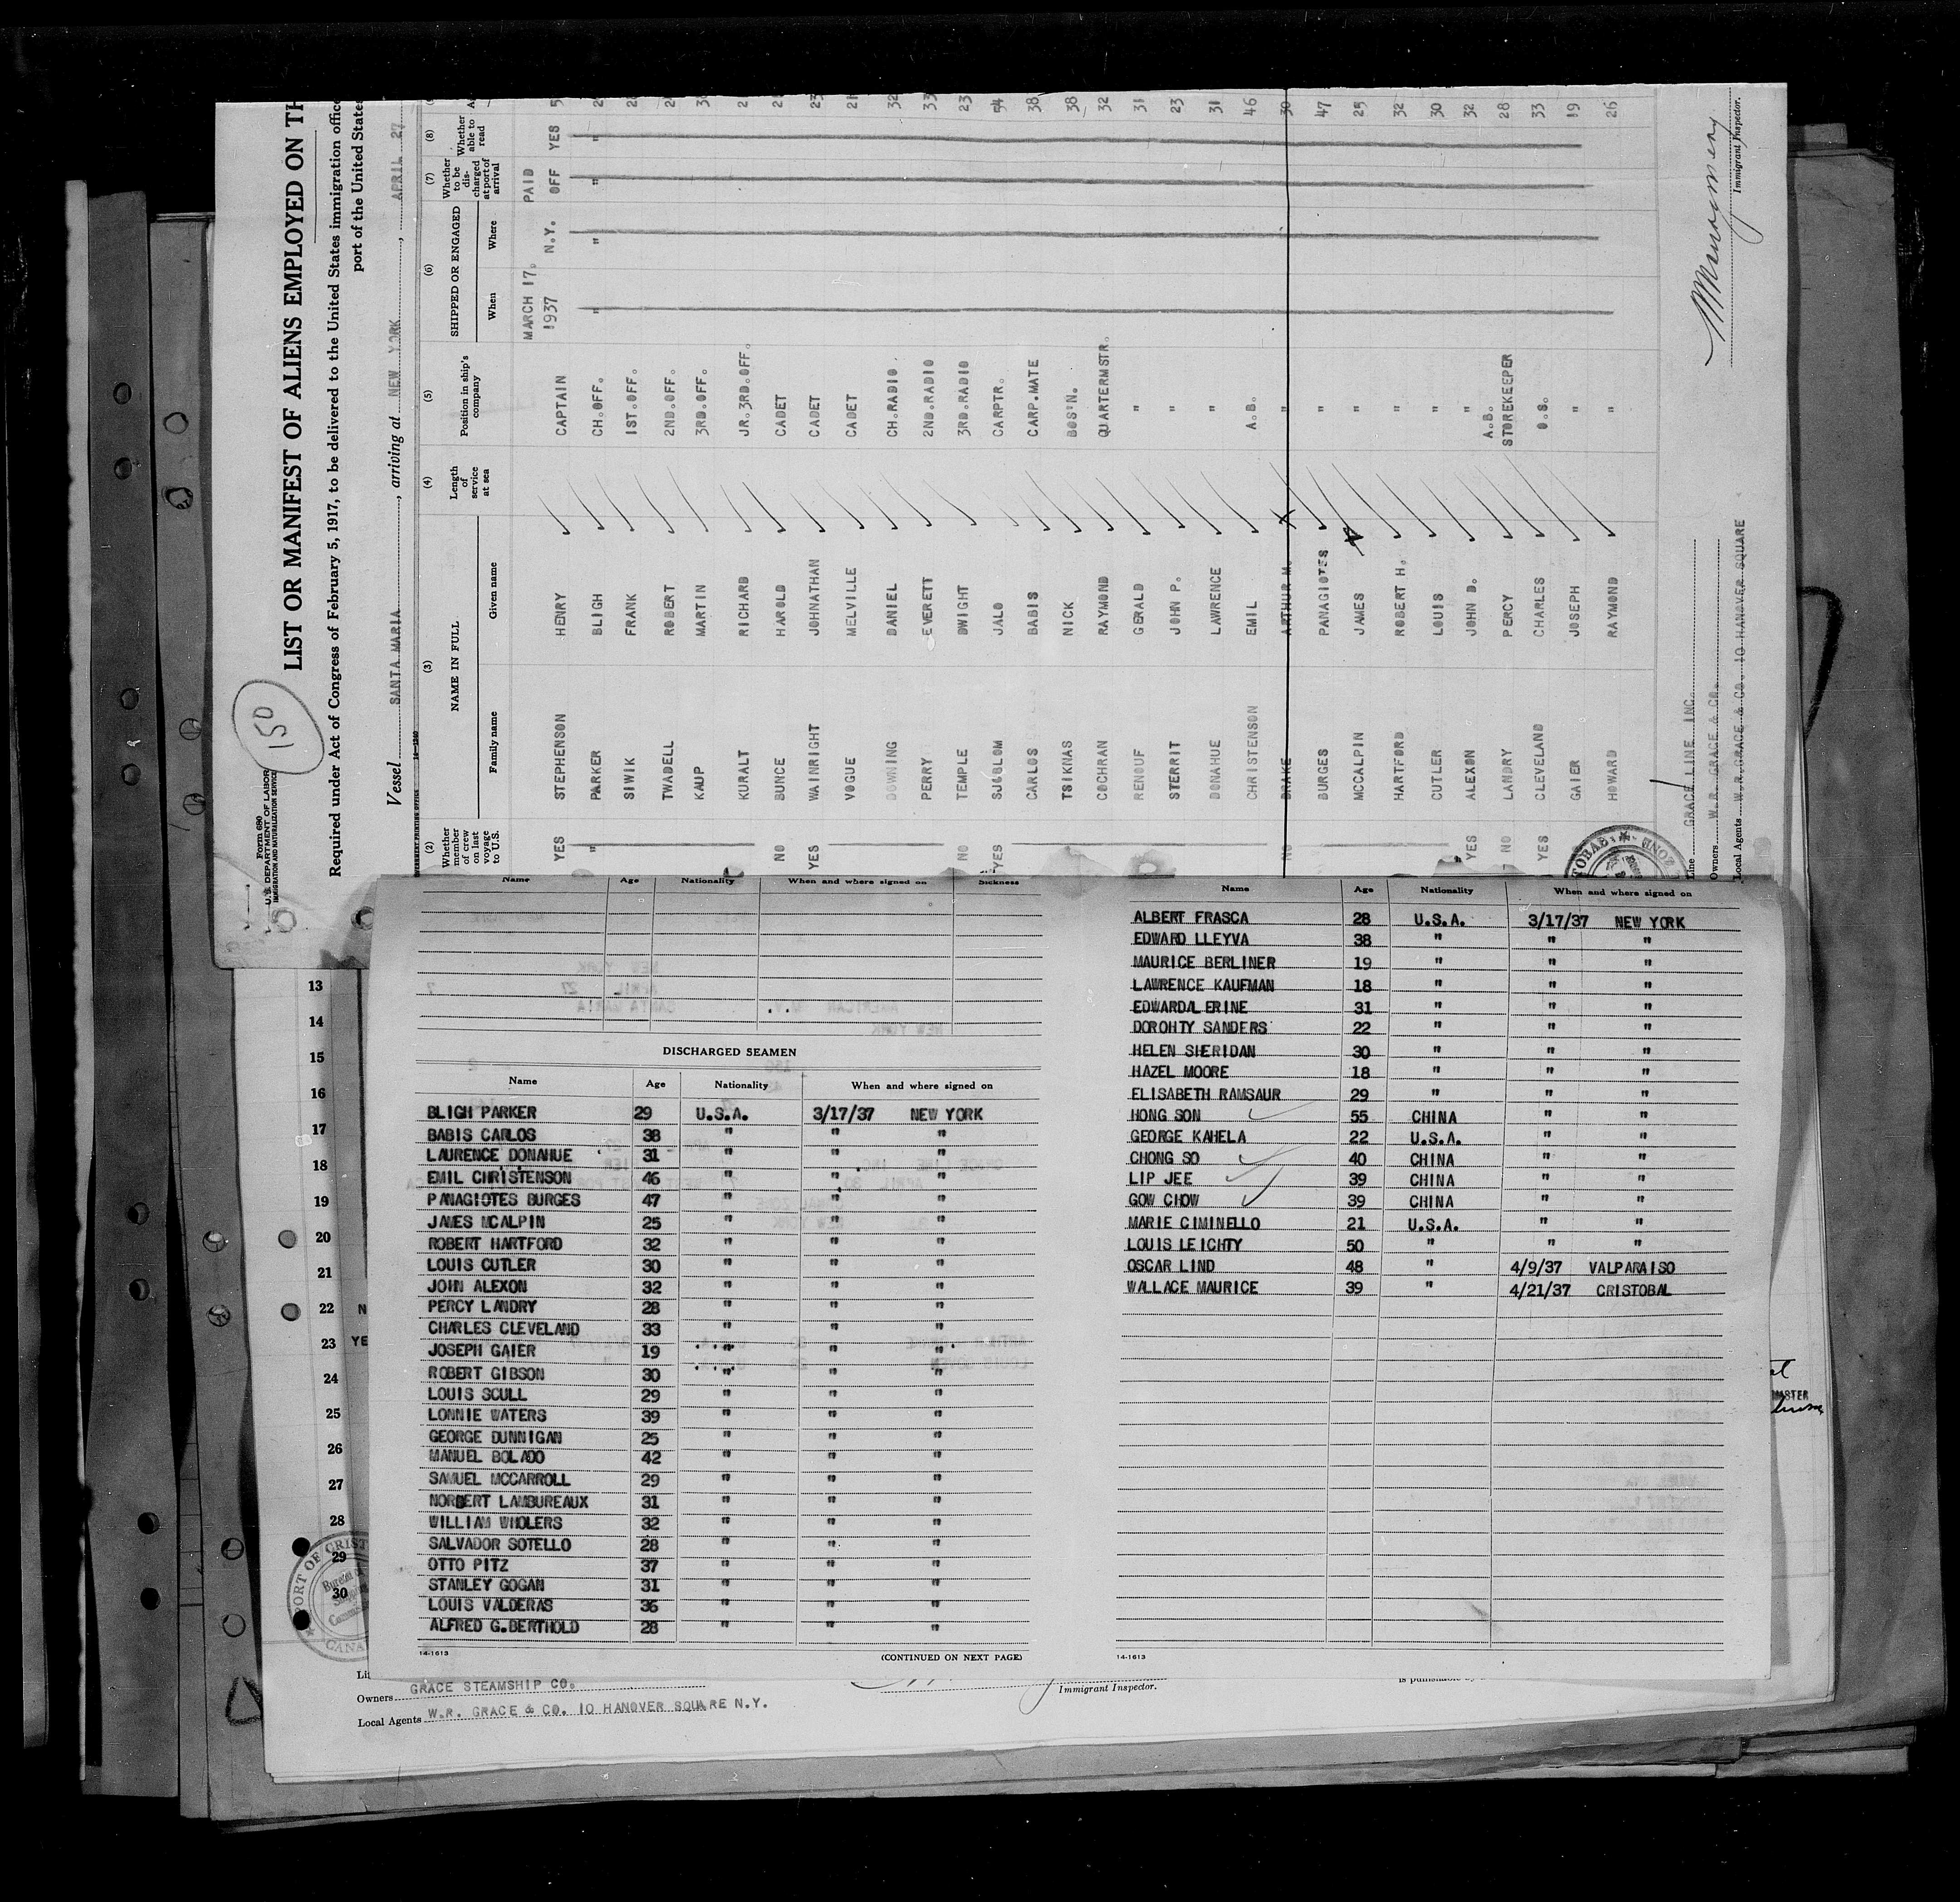 Form 680
U.S. DEPARTMENT OF LABOR
IMMIGRATION AND NATURALIZATION SERVICE
150
LIST OR MANIFEST OF ALIENS EMPLOYED ON TH
Required under Act of Congress of February 5, 1917, to be delivered to the United States immigration office
port of the United States
Vessel SANTA MARIA, arriving at NEW YORK, APRIL 27
(2) (3) (4) (5) (6) (7) (8)
Whether member of crew on last voyage to U.S. NAME IN FULL Length of service at sea Position in ship's company SHIPPED OR ENGAGED Whether to be discharged at port of arrival Whether able to read
Family name Given name When Where
MARCH 17. PAID
YES STEPHENSON HENRY CAPTAIN 1937 N.Y. OFF YES 5
" PARKER BLIGH CH.OFF. " " " " 2
SIWIK FRANK 1ST.OFF. 2
TWADELL ROBERT 2ND.OFF. 2
KAUP MARTIN 3RD.OFF. 3
KURALT RICHARD JR.3RD.OFF. 2
NO BUNCE HAROLD CADET 2
YES WAINRIGHT JOHNATHAN CADET 23
VOGUE MELVILLE CADET 21
DOWNING DANIEL CH.RADIO. 32
PERRY EVERETT 2ND.RADIO 33
NO TEMPLE DWIGHT 3RD.RADIO 23
YES SJOGLOM JALO CARPTR. 54
CARLOS BABIS CARP.MATE 38
TSIKNAS NICK BOS'N. 38
COCHRAN RAYMOND QUARTERMSTR. 32
RENOUF GERALD " 31
STERRIT JOHN P. " 23
DONAHUE LAWRENCE " 31
CHRISTENSON EMIL A.B. 46
NO DRAKE ARTHUR M. " 30
BURGES PANAGIOTES " 47
MCCALPIN JAMES " 25
HARTFORD ROBERT H. " 32
CUTLER LOUIS " 30
YES ALEXON JOHN D. " 32
NO LANDRY PERCY A.B. STOREKEEPER 28
YES CLEVELAND CHARLES O.S. 33
GAIER JOSEPH " 19
HOWARD RAYMOND " 26
Line GRACE LINE INC.
Owners W.R. GRACE & CO.
Local Agents W.R. GRACE & CO. 10 HANOVER SQUARE
Immigrant Inspector.
Name Age Nationality When and where signed on Sickness
DISCHARGED SEAMEN
Name Age Nationality When and where signed on
BLIGH PARKER 29 U.S.A. 3/17/37 NEW YORK
BABIS CARLOS 38 " " "
LAURENCE DONAHUE 31 " " "
EMIL CHRISTENSON 46 " " "
PANAGIOTES BURGES 47 " " "
JAMES MCALPIN 25 " " "
ROBERT HARTFORD 32 " " "
LOUIS CUTLER 30 " " "
JOHN ALEXON 32 " " "
PERCY LANDRY 28 " " "
CHARLES CLEVELAND 33 " " "
JOSEPH GAIER 19 " " "
ROBERT GIBSON 30 " " "
LOUIS SCULL 29 " " "
LONNIE WATERS 39 " " "
GEORGE DUNNIGAN 25 " " "
MANUEL BOLADO 42 " " "
SAMUEL MCCARROLL 29 " " "
NORBERT LAMBUREAUX 31 " " "
WILLIAM WHOLERS 32 " " "
SALVADOR SOTELLO 28 " " "
OTTO PITZ 37 " " "
STANLEY GOGAN 31 " " "
LOUIS VALDERAS 36 " " "
ALFRED G.BERTHOLD 28 " " "
14-1613 (CONTINUED ON NEXT PAGE)
Name Age Nationality When and where signed on
ALBERT FRASCA 28 U.S.A. 3/17/37 NEW YORK
EDWARD LLEYVA 38 " " "
MAURICE BERLINER 19 " " "
LAWRENCE KAUFMAN 18 " " "
EDWARD/LERINE 31 " " "
DOROHTY SANDERS 22 " " "
HELEN SHERIDAN 30 " " "
HAZEL MOORE 18 " " "
ELISABETH RAMSAUR 29 " " "
HONG SON 55 CHINA " "
GEORGE KAHELA 22 U.S.A. " "
CHONG SO 40 CHINA " "
LIP JEE 39 CHINA " "
GOW CHOW 39 CHINA " "
MARIE CIMINELLO 21 U.S.A. " "
LOUIS LEICHTY 50 " " "
OSCAR LIND 48 " 4/9/37 VALPARAISO
WALLACE MAURICE 39 " 4/21/37 CRISTOBAL
14-1613
13
14
15
16
17
18
19
20
21
22 N
23 YE
24
25
26
27
28
29
30
PORT OF CRIST
CANA
MASTER
Owners GRACE STEAMSHIP CO.
Local Agents W.R. GRACE & CO. 10 HANOVER SQUARE N.Y.
Immigrant Inspector.